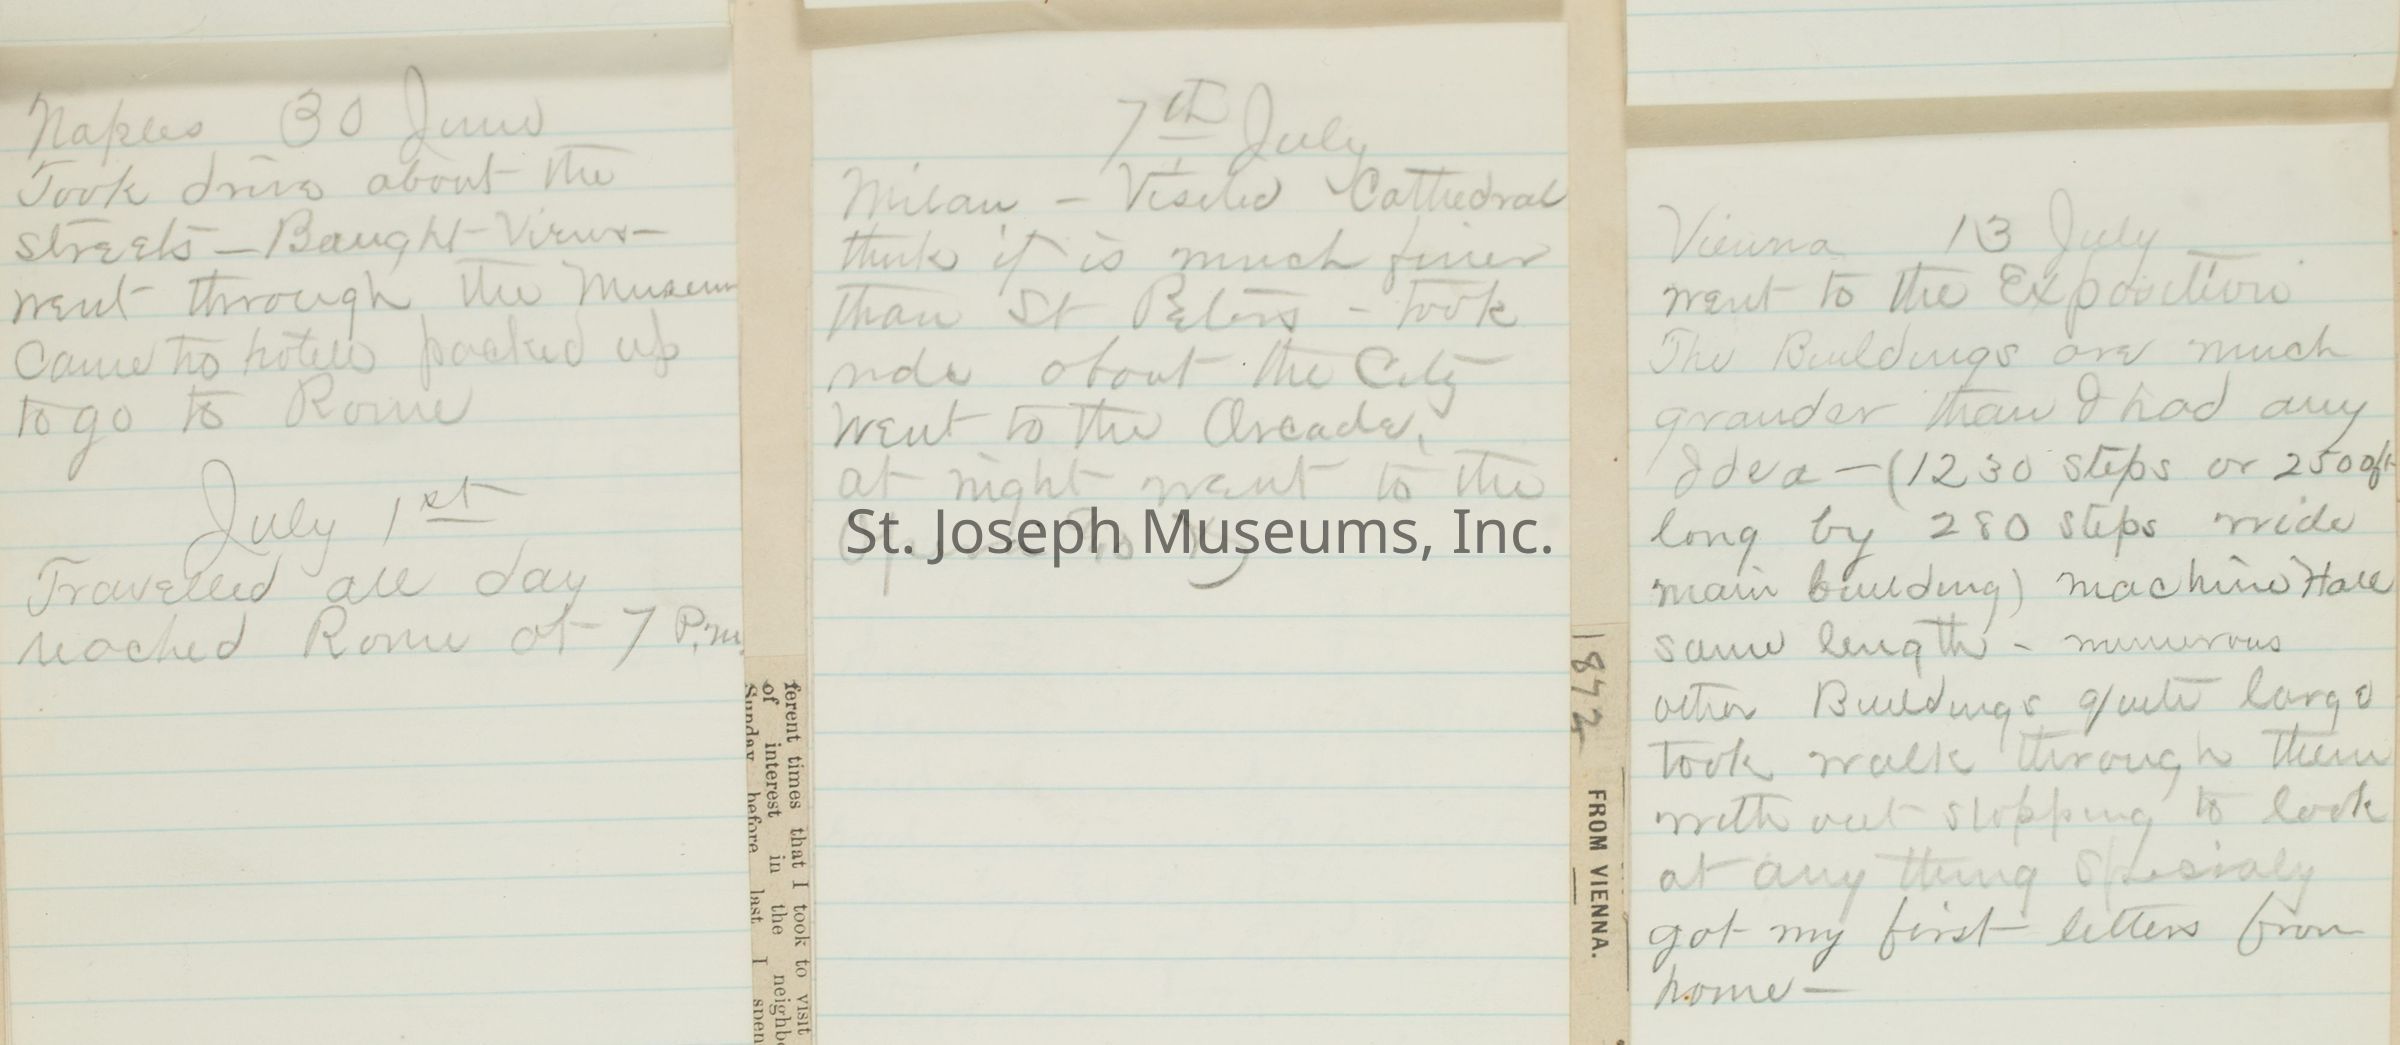 Naples 30 June
Took drive about the
streets – Baught Views –
went through the Museum
Came to hotell packed up
to go to Rome
July 1st
Travelled all day
reached Rome at 7 P.m.
ferent times that I took to visit
of interest in the neighb
Sunday before last I spen
7th July
Milan – Visited Cathedral
think it is much finer
than St Peters – took
ride about the City
Went to the Arcade,
at night went to the
St. Joseph Museums, Inc.
1872
FROM VIENNA.
Vienna 13 July
went to the Exposition
The Buildings are much
grander than I had any
Idea – (1230 steps or 2500ft
long by 280 steps wide
main building) machine Hall
same length – numerous
other Buildings quite large
took walk through them
without stopping to look
at any thing Spesialy
got my first letters from
home –